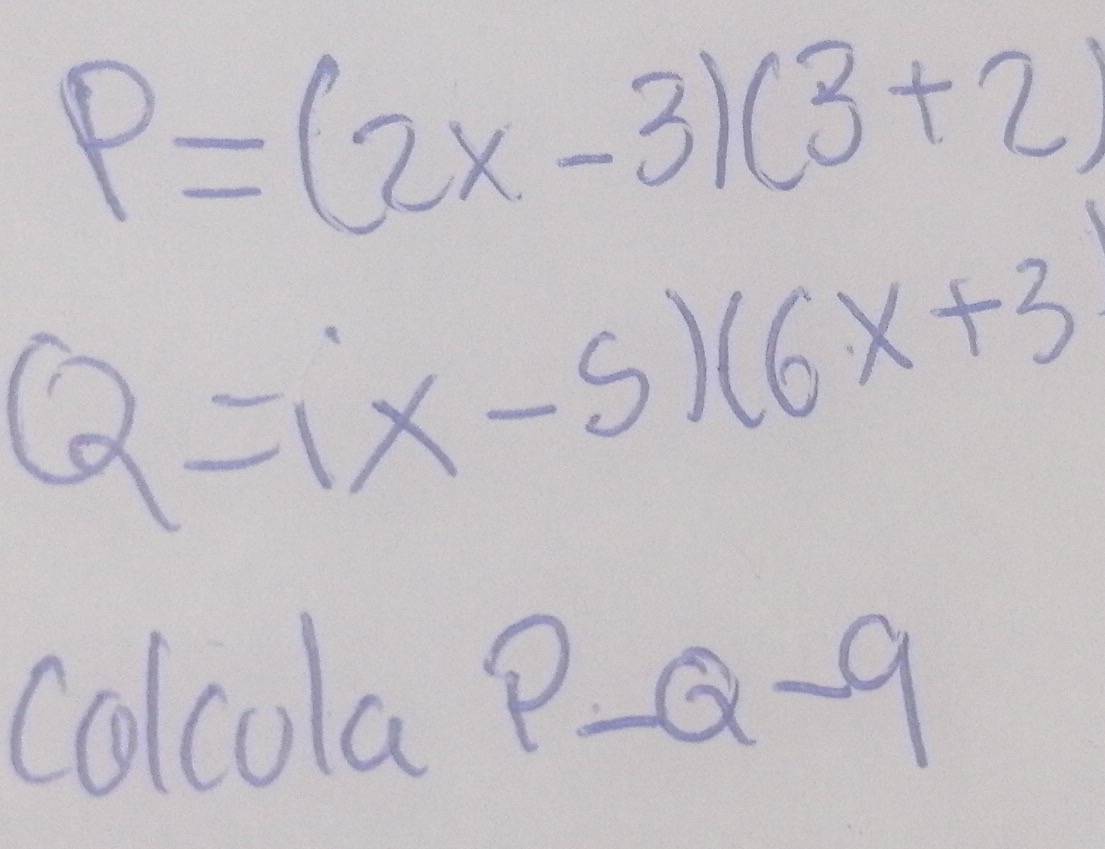 P=(2x-3)(3+2)
Q=(x-5)(6x+3)
Calcula P-Q-9